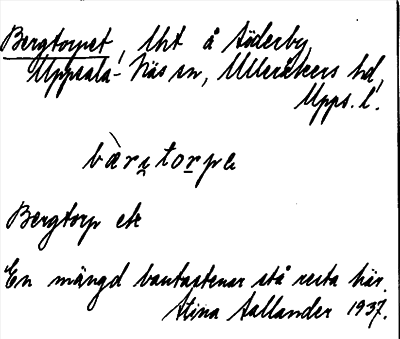 Bergtorpet, lht å Söderby,
Uppsala-Näs sn, Ulleråkers hd,
Upps. l.
bæ̀rɪtorpɐ
Bergtorp ek
En mängd bautastenar stå resta här.
Stina Sallander 1937.